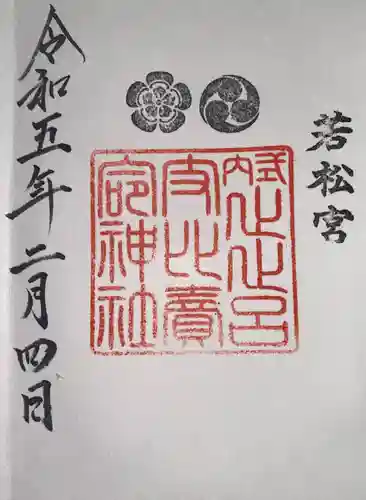 若松宮
式内止止呂
支比賣
命神社
令和五年二月四日